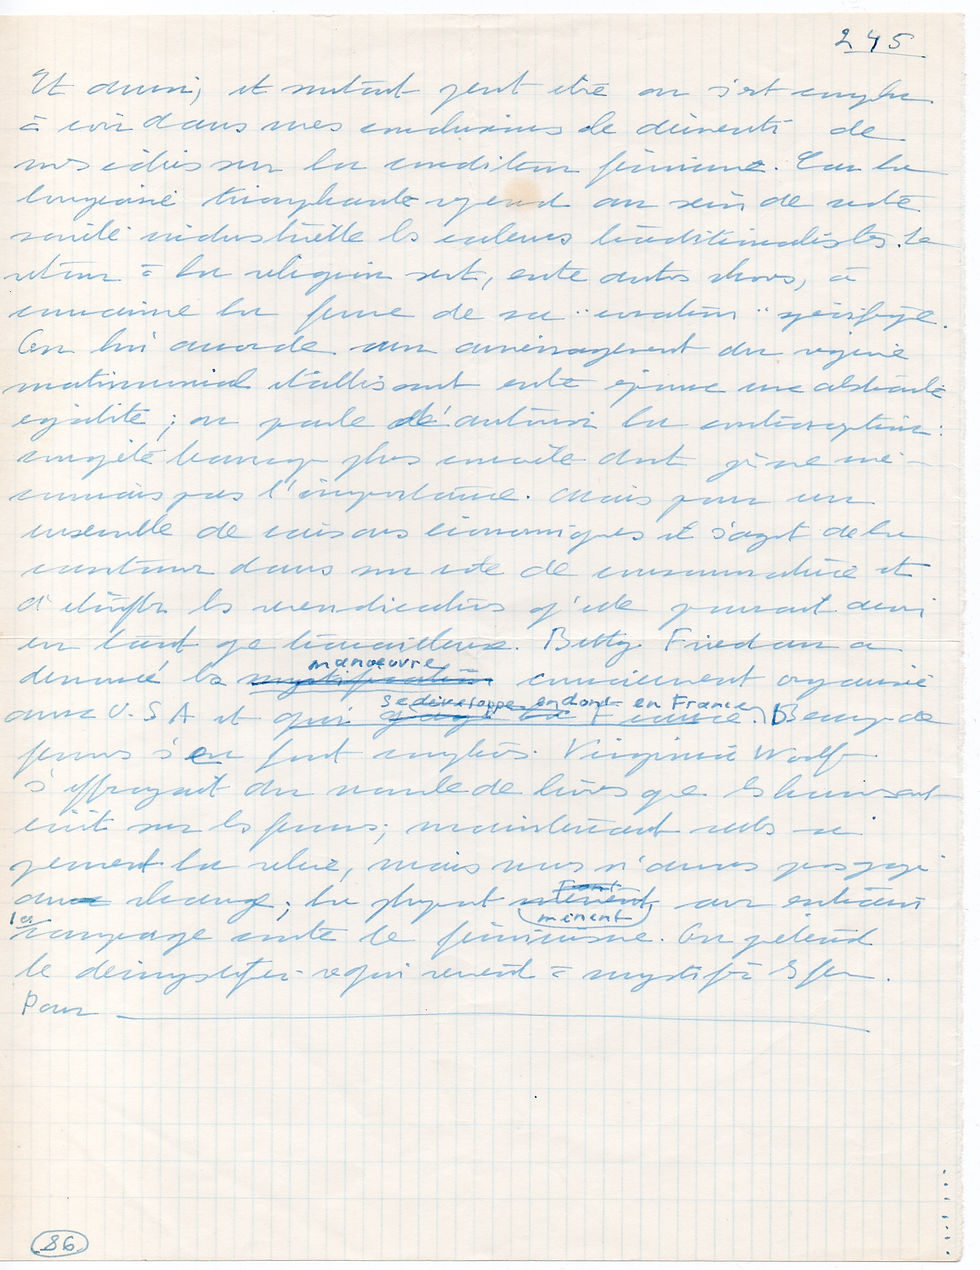 245
Et aussi, et surtout peut être on s'est empressé
à voir dans mes conclusions le démenti de
mes idées sur la condition féminine. Car la
bourgeoisie triomphante reprend au sein de notre
société industrielle les valeurs traditionalistes. Le
retour à la religion sert, entre autres choses, à
convaincre la femme de sa "vocation" spécifique.
On lui accorde un aménagement du régime
matrimonial établissant entre époux une abstraite
égalité ; on parle d'autoriser la contraception :
conquête beaucoup plus concrète dont je ne mé-
connais pas l'importance. Mais pour un
ensemble de raisons économiques il s'agit de la
cantonner dans son rôle de consommatrice et
d'étouffer les revendications qu'elle pourrait avoir
en tant que travailleuse. Betty Friedan a
dénoncé la manoeuvre consciemment organisée
aux U.S.A et qui se développe en France. Beaucoup de
femmes s'en font complices. Virginia Woolf
s'effrayait du nombre de livres que les hommes ont
écrit sur les femmes ; maintenant celles-ci
prennent la relève, mais nous n'avons pas gagné
au change ; la plupart mènent avec entrain
la campagne contre le féminisme. On prétend
le démystifier ce qui revient à mystifier les femmes.
Pour
86